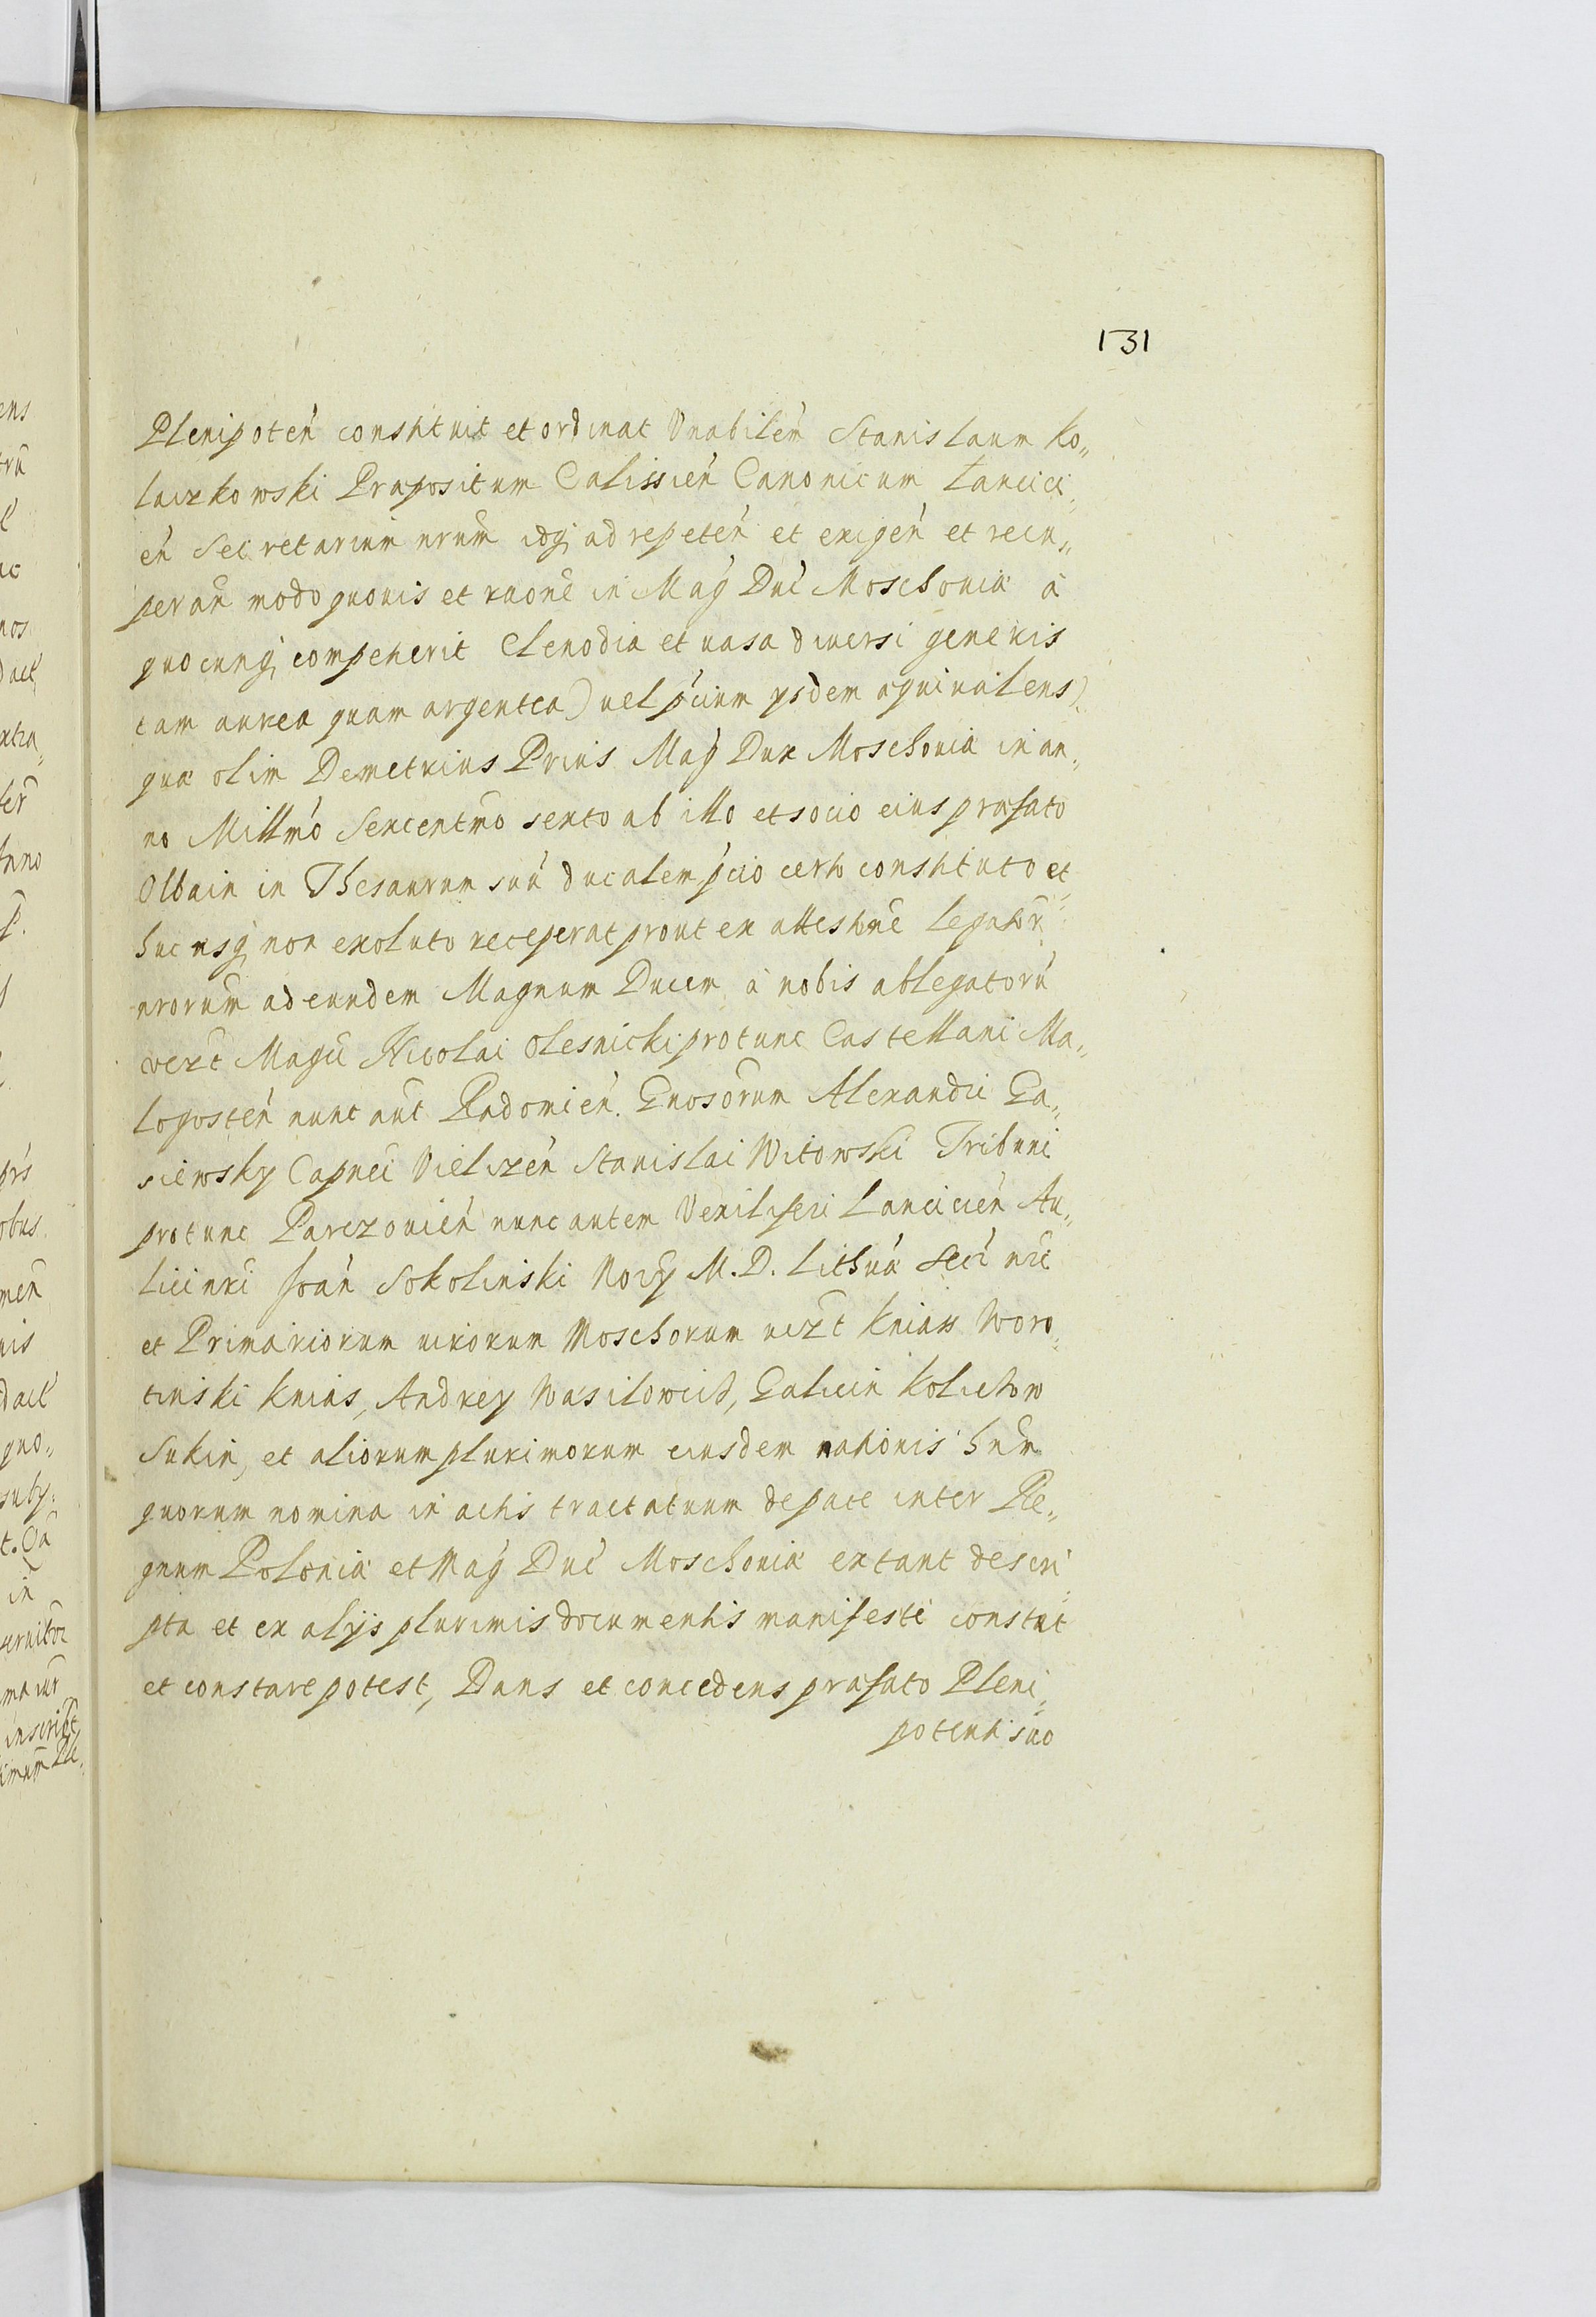 131
Plenipoten̄ constituit et ordinat Vnabilem̄ Stanislaum Ko„
laczkowski Præpositum Calissien̄ Canonicum Lancici„
en̄ Secretarium nrum̄ idq; ad repeten̄ et exigen̄ et recu„
peran̄ modo quouis et raone in Mag Duc̄ Moschouiæ à
quocunq; compererit Clenodia et uasa diuersi generis
tam aurea quam argentea) uel p̄cium ysdem æquiualens)
quæ olim Demetrius Prius Mag Dux Moschouiæ in an„
no Millmo Sexcentmo sexto ab illo et socio eius præfato
Olbain in Thesaurum suū ducalem p̄cio certo constituto et
huc usq; non exoluto receperat prout ex attestōne legatorū
nrorum ad eundem Magnum Ducem à nobis ablegatorū
vezt Magci Nicolai Olesnicki protunc Castellani Ma„
logosten̄ nunc aut̄ Radomien̄. Gnosorum Alexandri Ga„
siewsky Capnei Vielizen̄ Stanislai Witowski Tribuni
protunc Parczouien̄ nunc autem Vexilliferi Lancicien̄ Au„
lici nri Joan̄ Sokolinski Nory M. D. Lithuæ Secr̄ nri
et Primariorum uirorum Moschorum uizt Kniass Woro„
tinski Knias, Andrey Wasilowicd, Galicin Kolichow
Sukin, et aliorum plurimorum eiusdem nationis hum̄
quorum nomina in actis tractatuum de pace inter Re„
gnum Poloniæ et Mag Duc̄ Moschouiæ extant descri„
pta et ex alijs plurimis documentis manifestè constat
et constare potest, Dans et concedens præfato Pleni„
potenti suo